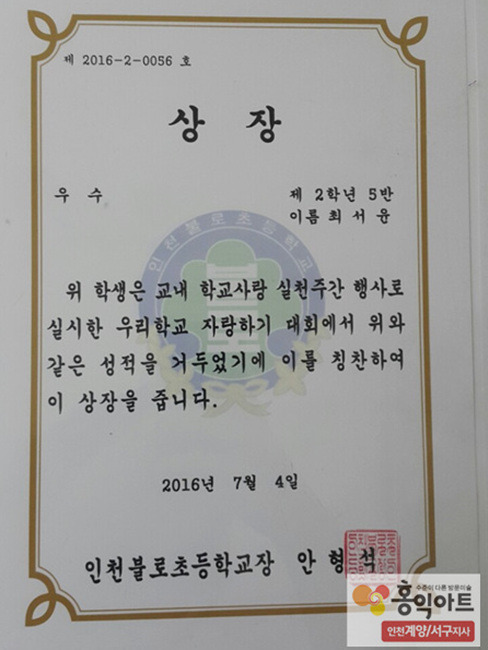 제 2016-2-0056 호
상 장
우 수
제 2학년 5반
이름 최 서 윤
인천불로초등학교
위 학생은 교내 학교사랑 실천주간 행사로
실시한 우리학교 자랑하기 대회에서 위와
같은 성적을 거두었기에 이를 칭찬하여
이 상장을 줍니다.
2016년 7월 4일
인천불로초등학교장 안 형 석
수준이 다른 방문미술
홍익아트
인천계양/서구지사